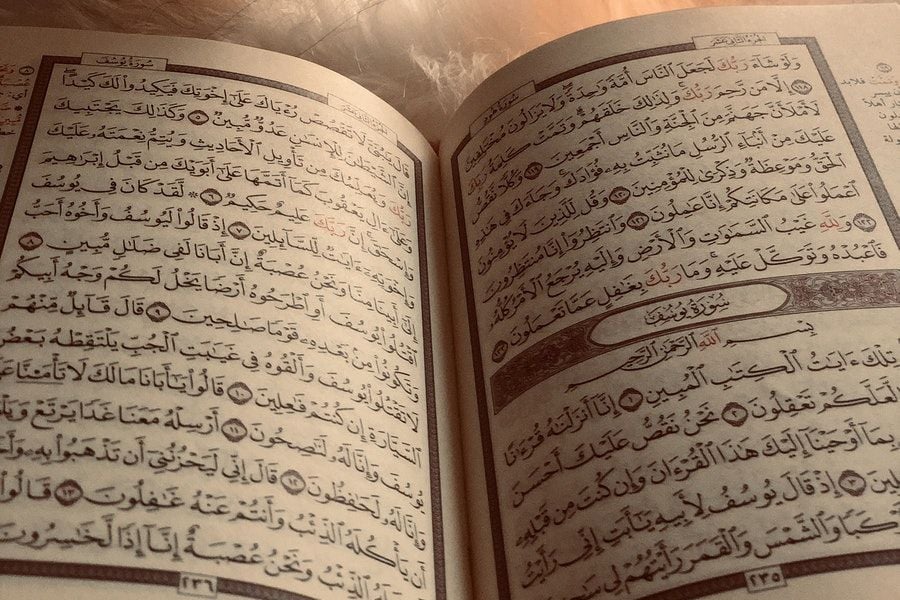 الجزء الثاني عشر
سورة هود
وَلَوْ شَآءَ رَبُّكَ لَجَعَلَ ٱلنَّاسَ أُمَّةً وَٰحِدَةً وَلَا يَزَالُونَ مُخْتَلِفِينَ
١١٨ إِلَّا مَن رَّحِمَ رَبُّكَ وَلِذَٰلِكَ خَلَقَهُمْ وَتَمَّتْ كَلِمَةُ رَبِّكَ
لَأَمْلَأَنَّ جَهَنَّمَ مِنَ ٱلْجِنَّةِ وَٱلنَّاسِ أَجْمَعِينَ ١١٩ وَكُلًّا نَّقُصُّ
عَلَيْكَ مِنْ أَنۢبَآءِ ٱلرُّسُلِ مَا نُثَبِّتُ بِهِۦ فُؤَادَكَ وَجَآءَكَ فِى هَٰذِهِ
ٱلْحَقُّ وَمَوْعِظَةٌ وَذِكْرَىٰ لِلْمُؤْمِنِينَ ١٢٠ وَقُل لِّلَّذِينَ لَا يُؤْمِنُونَ
ٱعْمَلُوا۟ عَلَىٰ مَكَانَتِكُمْ إِنَّا عَٰمِلُونَ ١٢١ وَٱنتَظِرُوٓا۟ إِنَّا مُنتَظِرُونَ
١٢٢ وَلِلَّهِ غَيْبُ ٱلسَّمَٰوَٰتِ وَٱلْأَرْضِ وَإِلَيْهِ يُرْجَعُ ٱلْأَمْرُ كُلُّهُۥ
فَٱعْبُدْهُ وَتَوَكَّلْ عَلَيْهِ وَمَا رَبُّكَ بِغَٰفِلٍ عَمَّا تَعْمَلُونَ ١٢٣
سُورَةُ يُوسُفَ
بِسْمِ ٱللَّهِ ٱلرَّحْمَٰنِ ٱلرَّحِيمِ
تِلْكَ ءَايَٰتُ ٱلْكِتَٰبِ ٱلْمُبِينِ ١ إِنَّآ أَنزَلْنَٰهُ قُرْءَٰنًا
لَّعَلَّكُمْ تَعْقِلُونَ ٢ نَحْنُ نَقُصُّ عَلَيْكَ أَحْسَنَ
بِمَآ أَوْحَيْنَآ إِلَيْكَ هَٰذَا ٱلْقُرْءَانَ وَإِن كُنتَ مِن قَبْلِهِۦ
لِينَ ٣ إِذْ قَالَ يُوسُفُ لِأَبِيهِ يَٰٓأَبَتِ إِنِّى رَأَيْتُ
كَبًا وَٱلشَّمْسَ وَٱلْقَمَرَ رَأَيْتُهُمْ لِى
٢٣٥
سورة يوسف
الجزء الثاني عشر
قَالَ يَٰبُنَىَّ لَا تَقْصُصْ رُءْيَاكَ عَلَىٰٓ إِخْوَتِكَ فَيَكِيدُوا۟ لَكَ كَيْدًا
إِنَّ ٱلشَّيْطَٰنَ لِلْإِنسَٰنِ عَدُوٌّ مُّبِينٌ ٥ وَكَذَٰلِكَ يَجْتَبِيكَ
رَبُّكَ وَيُعَلِّمُكَ مِن تَأْوِيلِ ٱلْأَحَادِيثِ وَيُتِمُّ نِعْمَتَهُۥ عَلَيْكَ
وَعَلَىٰٓ ءَالِ يَعْقُوبَ كَمَآ أَتَمَّهَا عَلَىٰٓ أَبَوَيْكَ مِن قَبْلُ إِبْرَٰهِيمَ
وَإِسْحَٰقَ إِنَّ رَبَّكَ عَلِيمٌ حَكِيمٌ ٦ ۞ لَّقَدْ كَانَ فِى يُوسُفَ
وَإِخْوَتِهِۦٓ ءَايَٰتٌ لِّلسَّآئِلِينَ ٧ إِذْ قَالُوا۟ لَيُوسُفُ وَأَخُوهُ أَحَبُّ
إِلَىٰٓ أَبِينَا مِنَّا وَنَحْنُ عُصْبَةٌ إِنَّ أَبَانَا لَفِى ضَلَٰلٍ مُّبِينٍ ٨
ٱقْتُلُوا۟ يُوسُفَ أَوِ ٱطْرَحُوهُ أَرْضًا يَخْلُ لَكُمْ وَجْهُ أَبِيكُمْ
وَتَكُونُوا۟ مِنۢ بَعْدِهِۦ قَوْمًا صَٰلِحِينَ ٩ قَالَ قَآئِلٌ مِّنْهُمْ
لَا تَقْتُلُوا۟ يُوسُفَ وَأَلْقُوهُ فِى غَيَٰبَتِ ٱلْجُبِّ يَلْتَقِطْهُ بَعْضُ
ٱلسَّيَّارَةِ إِن كُنتُمْ فَٰعِلِينَ ١٠ قَالُوا۟ يَٰٓأَبَانَا مَا لَكَ لَا تَأْمَ۫نَّا عَلَىٰ
يُوسُفَ وَإِنَّا لَهُۥ لَنَٰصِحُونَ ١١ أَرْسِلْهُ مَعَنَا غَدًا يَرْتَعْ وَيَلْعَبْ
وَإِنَّا لَهُۥ لَحَٰفِظُونَ ١٢ قَالَ إِنِّى لَيَحْزُنُنِىٓ أَن تَذْهَبُوا۟ بِهِۦ وَأَخَافُ
أَن يَأْكُلَهُ ٱلذِّئْبُ وَأَنتُمْ عَنْهُ غَٰفِلُونَ ١٣ قَالُوا۟
أَكَلَهُ ٱلذِّئْبُ وَنَحْنُ عُصْبَةٌ إِنَّآ إِذًا لَّخَٰسِرُونَ
٢٣٦